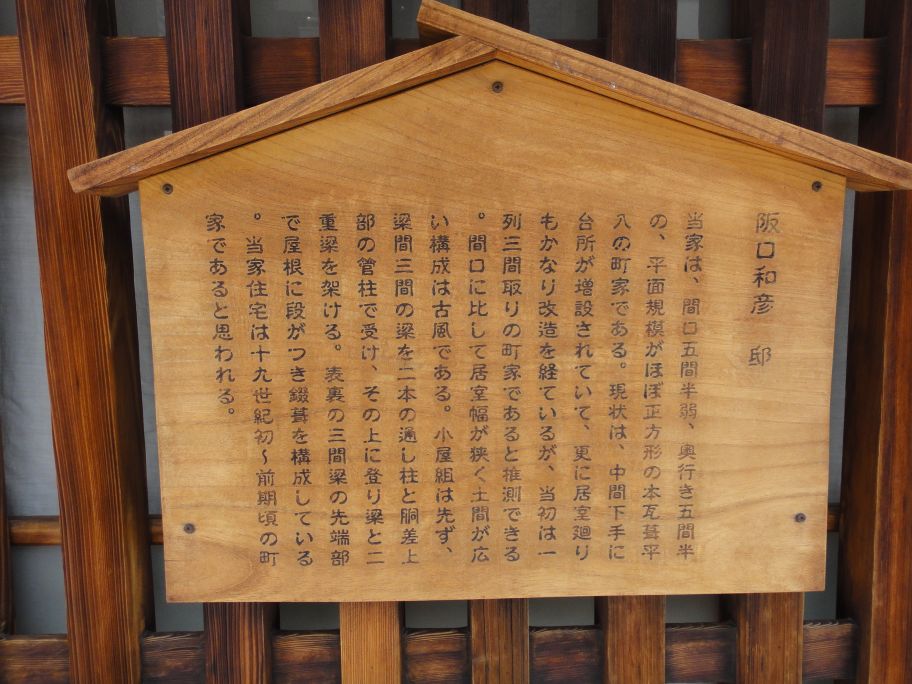 阪口和彦　邸
当家は、間口五間半弱、奥行き五間半
の、平面規模がほぼ正方形の本瓦葺平
入の町家である。現状は、中間下手に
台所が増設されていて、更に居室廻り
もかなり改造を経ているが、当初は一
列三間取りの町家であると推測できる
。間口に比して居室幅が狭く土間が広
い構成は古風である。小屋組は先ず、
梁間三間の梁を二本の通し柱と胴差上
部の管柱で受け、その上に登り梁と二
重梁を架ける。表裏の三間梁の先端部
で屋根に段がつき錣葺を構成している
。当家住宅は十九世紀初〜前期頃の町
家であると思われる。